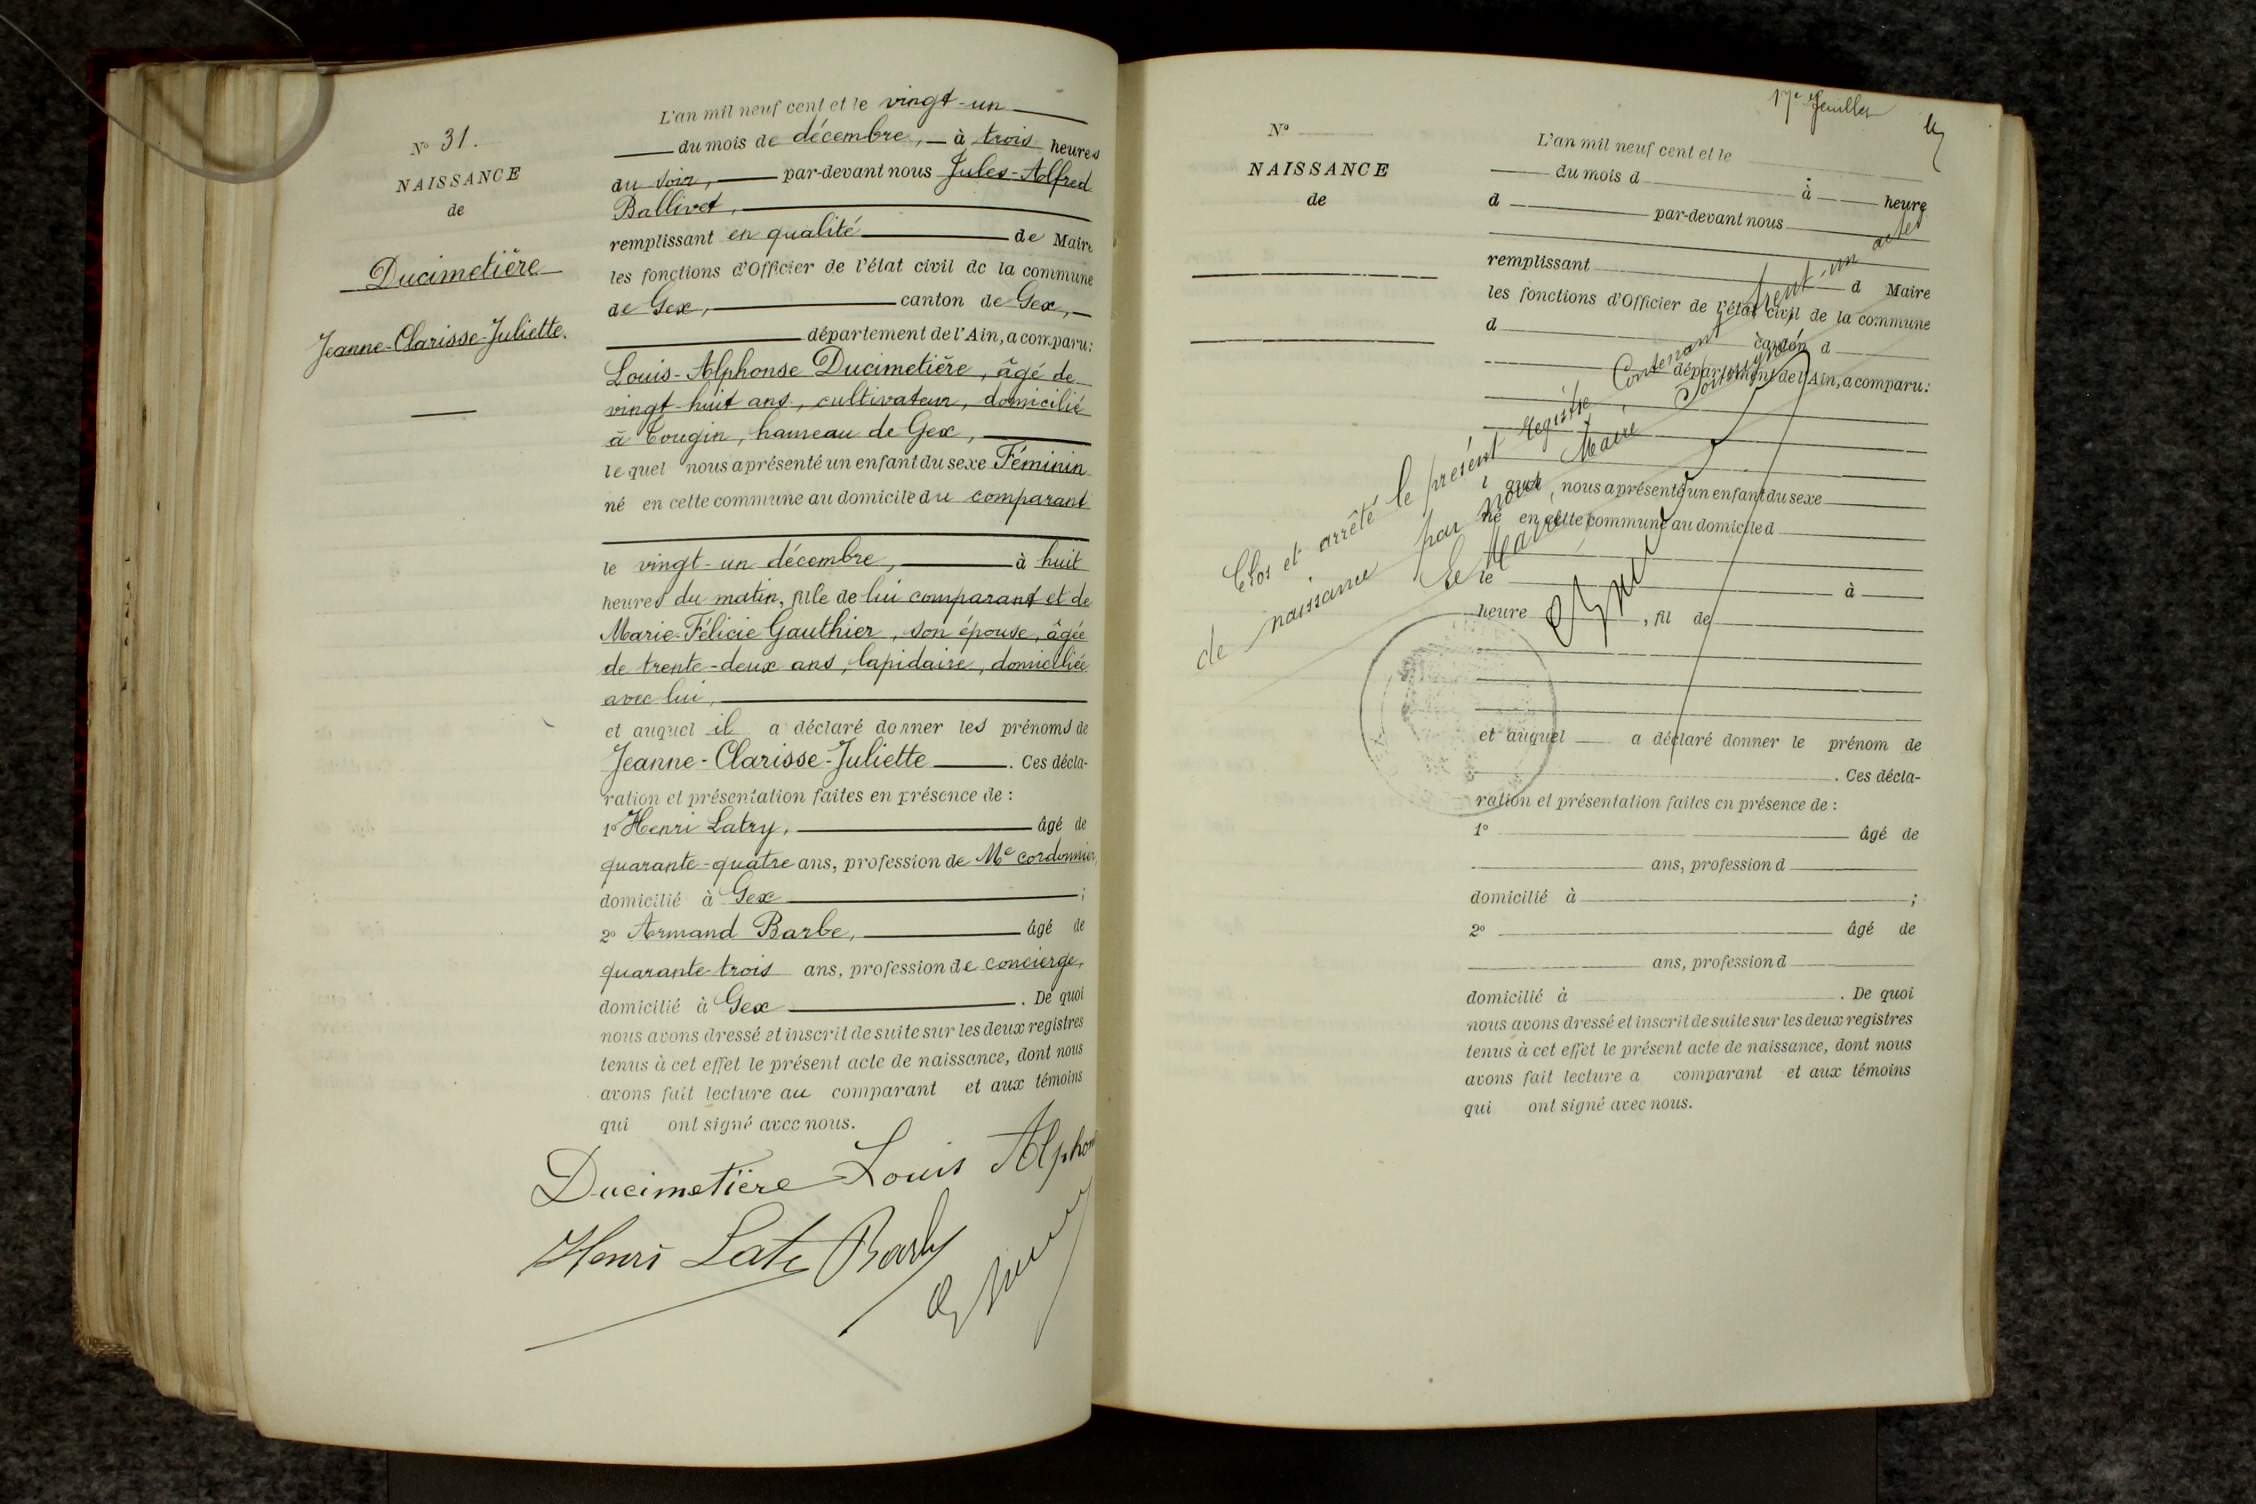 N° 31.
NAISSANCE
de
Ducimetière
Jeanne-Clarisse-Juliette.
L'an mil neuf cent et le vingt-un
du mois de décembre, à trois heures
du soir, par-devant nous Jules-Alfred
Ballivet,
remplissant en qualité de Maire
les fonctions d'Officier de l'état civil de la commune
de Gex, canton de Gex,
département de l'Ain, a comparu:
Louis-Alphonse Ducimetière, âgé de
vingt-huit ans, cultivateur, domicilié
à Tougin, hameau de Gex,
lequel nous a présenté un enfant du sexe Féminin
né en cette commune au domicile du comparant
le vingt-un décembre, à huit
heures du matin, fille de lui comparant et de
Marie-Félicie Gauthier, son épouse, âgée
de trente-deux ans, lapidaire, domiciliée
avec lui,
et auquel il a déclaré donner les prénoms de
Jeanne-Clarisse-Juliette. Ces décla-
ration et présentation faites en présence de :
1° Henri Latry, âgé de
quarante-quatre ans, profession de Me cordonnier,
domicilié à Gex ;
2° Armand Barbe, âgé de
quarante-trois ans, profession de concierge,
domicilié à Gex . De quoi
nous avons dressé et inscrit de suite sur les deux registres
tenus à cet effet le présent acte de naissance, dont nous
avons fait lecture au comparant et aux témoins
qui ont signé avec nous.
Ducimetière Louis Alphon
Henri
17e feuillet
N°
NAISSANCE
de
L'an mil neuf cent et le
du mois d à heure
d par-devant nous
remplissant d Maire
les fonctions d'Officier de l'état civil de la commune
d canton d
département de l'Ain, a comparu:
l quel nous a présenté un enfant du sexe
né en cette commune au domicile d
le à
heure , fil de
et auquel a déclaré donner le prénom de
. Ces décla-
ration et présentation faites en présence de :
1° âgé de
ans, profession d
domicilié à ;
2° âgé de
ans, profession d
domicilié à . De quoi
nous avons dressé et inscrit de suite sur les deux registres
tenus à cet effet le présent acte de naissance, dont nous
avons fait lecture a comparant et aux témoins
qui ont signé avec nous.
Clos et arrêté le présent registre Contenant trent-un actes
de naissance par nous, Maire, soussigné
Le Maire,